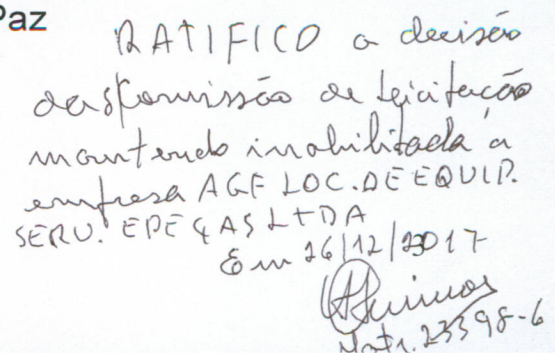 Paz
RATIFICO a decisão
da Comissão de Licitação
mantendo inabilitada a
empresa AGF LOC. DE EQUIP.
SERV. E PEÇAS LTDA
Em 26/12/2017
Matr. 23398-6